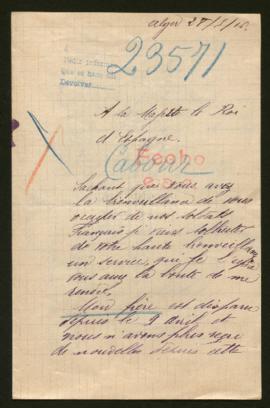 Alger 27/5/18.
A
Pedir informes
que se hace
Devolver
23571
A la Majesté le Roi
d'Espagne.
Cabour
Fecho
Sachant que vous avez
la bienveillance de vous
occuper de nos soldats
français je viens solliciter
de votre haute bienveillance
un service, que j'espère
vous aurez la bonté de me
rendre.
Mon frère est disparu
depuis le 9 avril et
nous n'avons plus reçu
de nouvelles depuis cette